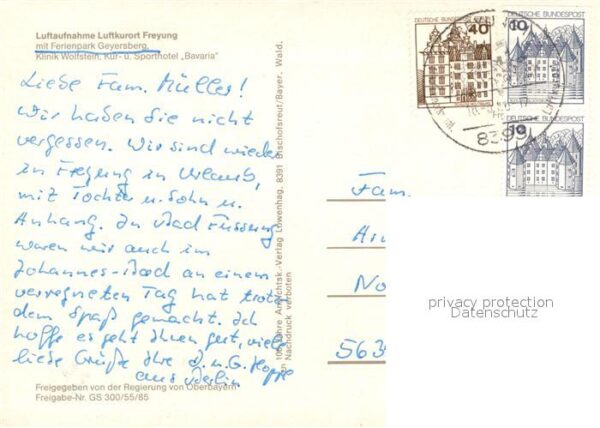 Luftaufnahme Luftkurort Freyung
mit Ferienpark Geyersberg,
Klinik Wolfstein, Kur- u. Sporthotel „Bavaria"
Liebe Fam. Müller!
Wir haben Sie nicht
vergessen. Wir sind wieder
in Freyung in Urlaub,
mit Tochter u. Sohn u.
Anhang. In Bad Füssing
waren wir auch im
Johannes-Bad an einem
verregneten Tag hat trotz
dem Spaß gemacht. Ich
hoffe es geht Ihnen gut, viele
liebe Grüße Ihre J. u. G. Hoppe
aus Berlin
Freigegeben von der Regierung von Oberbayern
Freigabe-Nr. GS 300/55/85
Jahre Ansichtsk.-Verlag Löwenhag, 8391 Bischofsreut/Bayer. Wald.
Nachdruck verboten
DEUTSCHE BUNDESPOST
40
DEUTSCHE BUNDESPOST
10
DEUTSCHE BUNDESPOST
10
839
Fam.
No
563
privacy protection
Datenschutz